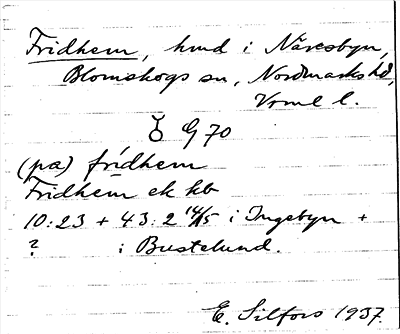 Fridhem, hmd i Näresbyn,
Blomskogs sn, Nordmarks hd,
Vrml l.
G 70
(pa) frídhem
Fridhem ek kb
10:23 + 43:2 14/5 i Ingebyn +
? i Bustelund.
E. Silfors 1937.